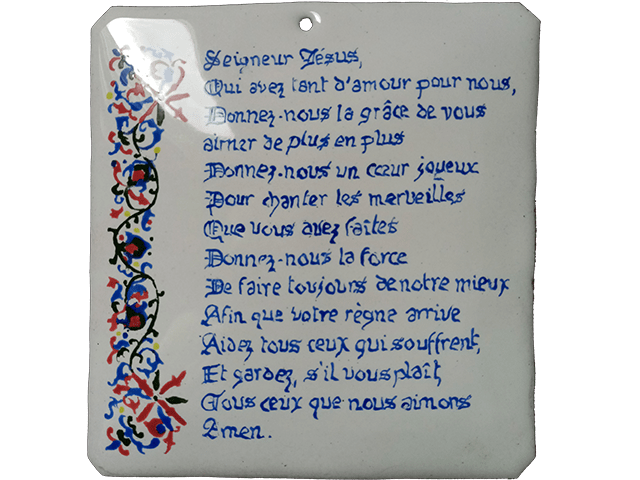 Seigneur Jésus,
Qui avez tant d'amour pour nous,
Donnez-nous la grâce de vous
aimer de plus en plus
Donnez-nous un cœur joyeux
Pour chanter les merveilles
Que vous avez faites
Donnez-nous la force
De faire toujours de notre mieux
Afin que votre règne arrive
Aidez tous ceux qui souffrent,
Et gardez, s'il vous plaît,
Tous ceux que nous aimons
Amen.